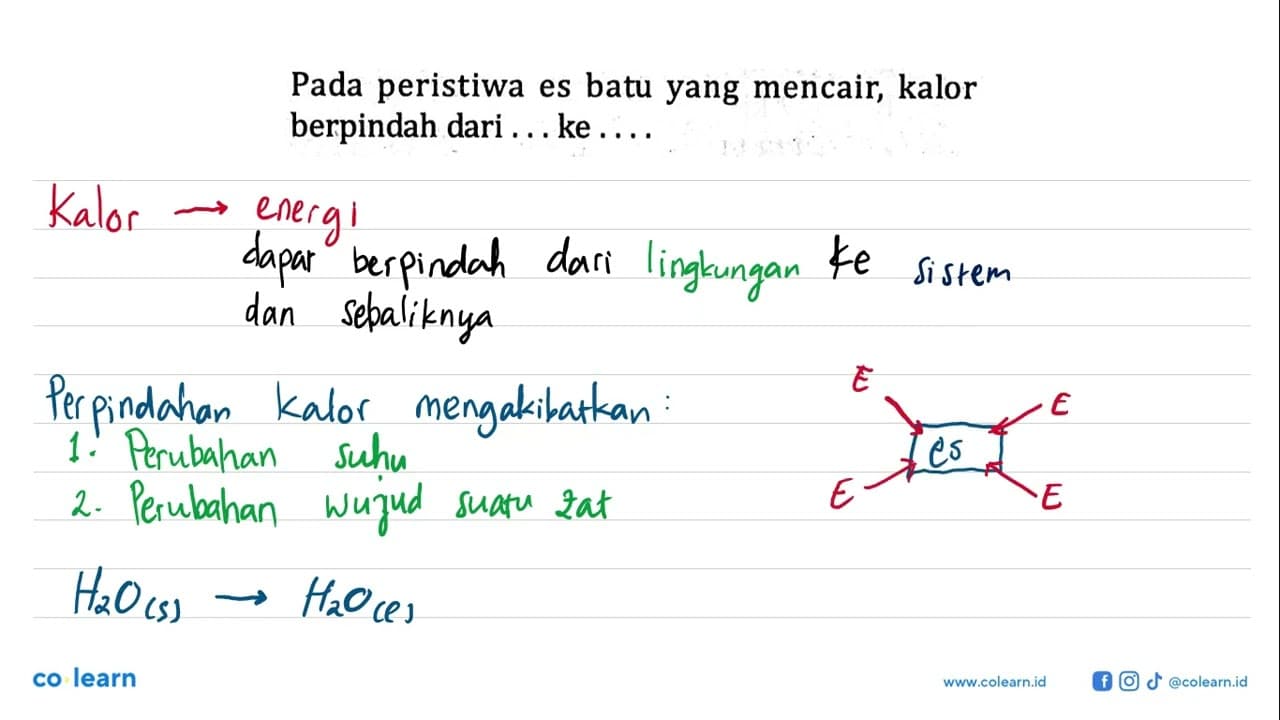 Pada peristiwa es batu yang mencair, kalor
berpindah dari ... ke ....
Kalor → energi
dapat berpindah dari lingkungan ke sistem
dan sebaliknya
Perpindahan kalor mengakibatkan :
1. Perubahan suhu
2. Perubahan wujud suatu zat
E
E
es
E
E
H₂O(s) → H₂O(l)
co learn
www.colearn.id
@colearn.id